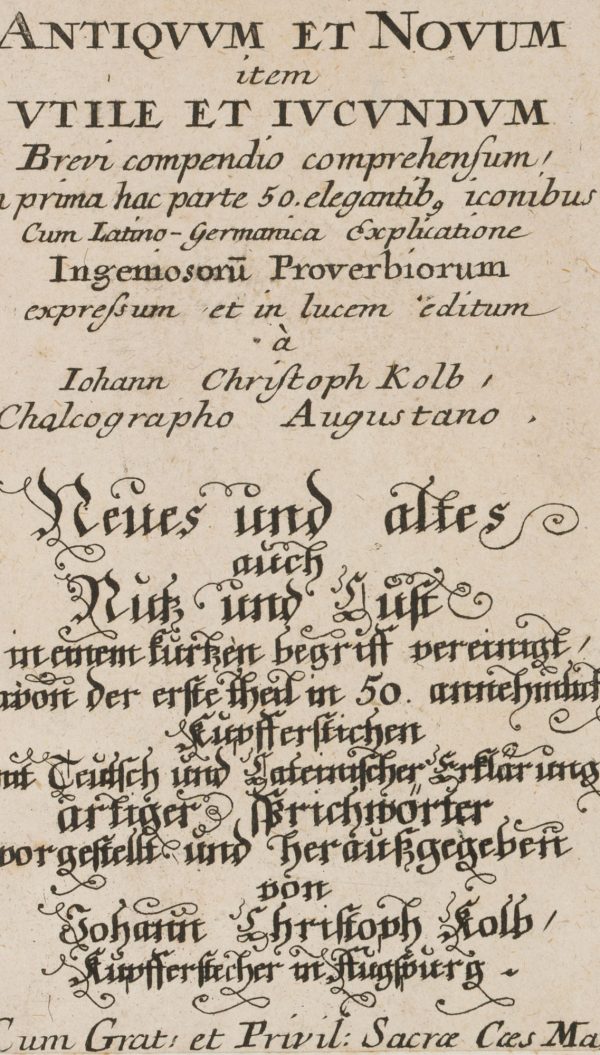 ANTIQVVM ET NOVUM
item
VTILE ET IVCVNDVM
Brevi compendio comprehensum,
prima hac parte 50. elegantibꝰ iconibus
Cum Latino-Germanica Explicatione
Ingeniosorū Proverbiorum
expreſsum et in lucem editum
à
Iohann Chriſtoph Kolb,
Chalcographo Augustano.
Neues und altes
auch
Nutz und Luſt
in einem kurtzen begriff vereinigt,
der erſte theil in 50. annehmlich
Kupfferſtichen
Teutſch und Lateiniſcher Erklärung
artiger ſprichwörter
vorgeſtellt und heraußgegeben
von
Johann Chriſtoph Kolb,
Kupfferſtecher in Augſpurg.
Cum Grat: et Privil: Sacræ Cæs Ma